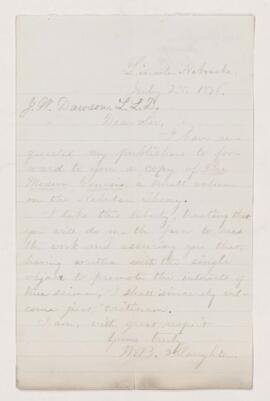 Lincoln Nebraska
July 28, 1876.
J. W. Dawson, L.L.D.
Dear Sir,
I have re-
quested my publishers to for-
ward to you a copy of The
Modern Genesis, a small volume
on the Nebular Theory.
I take this liberty, trusting that
you will do me the favor to read
the work and assuring you that,
having written with the single
object to promote the interests of
true science, I shall sincerely wel-
come just criticism.
I am, with great respect
Yours truly,
W. B. Slaughter